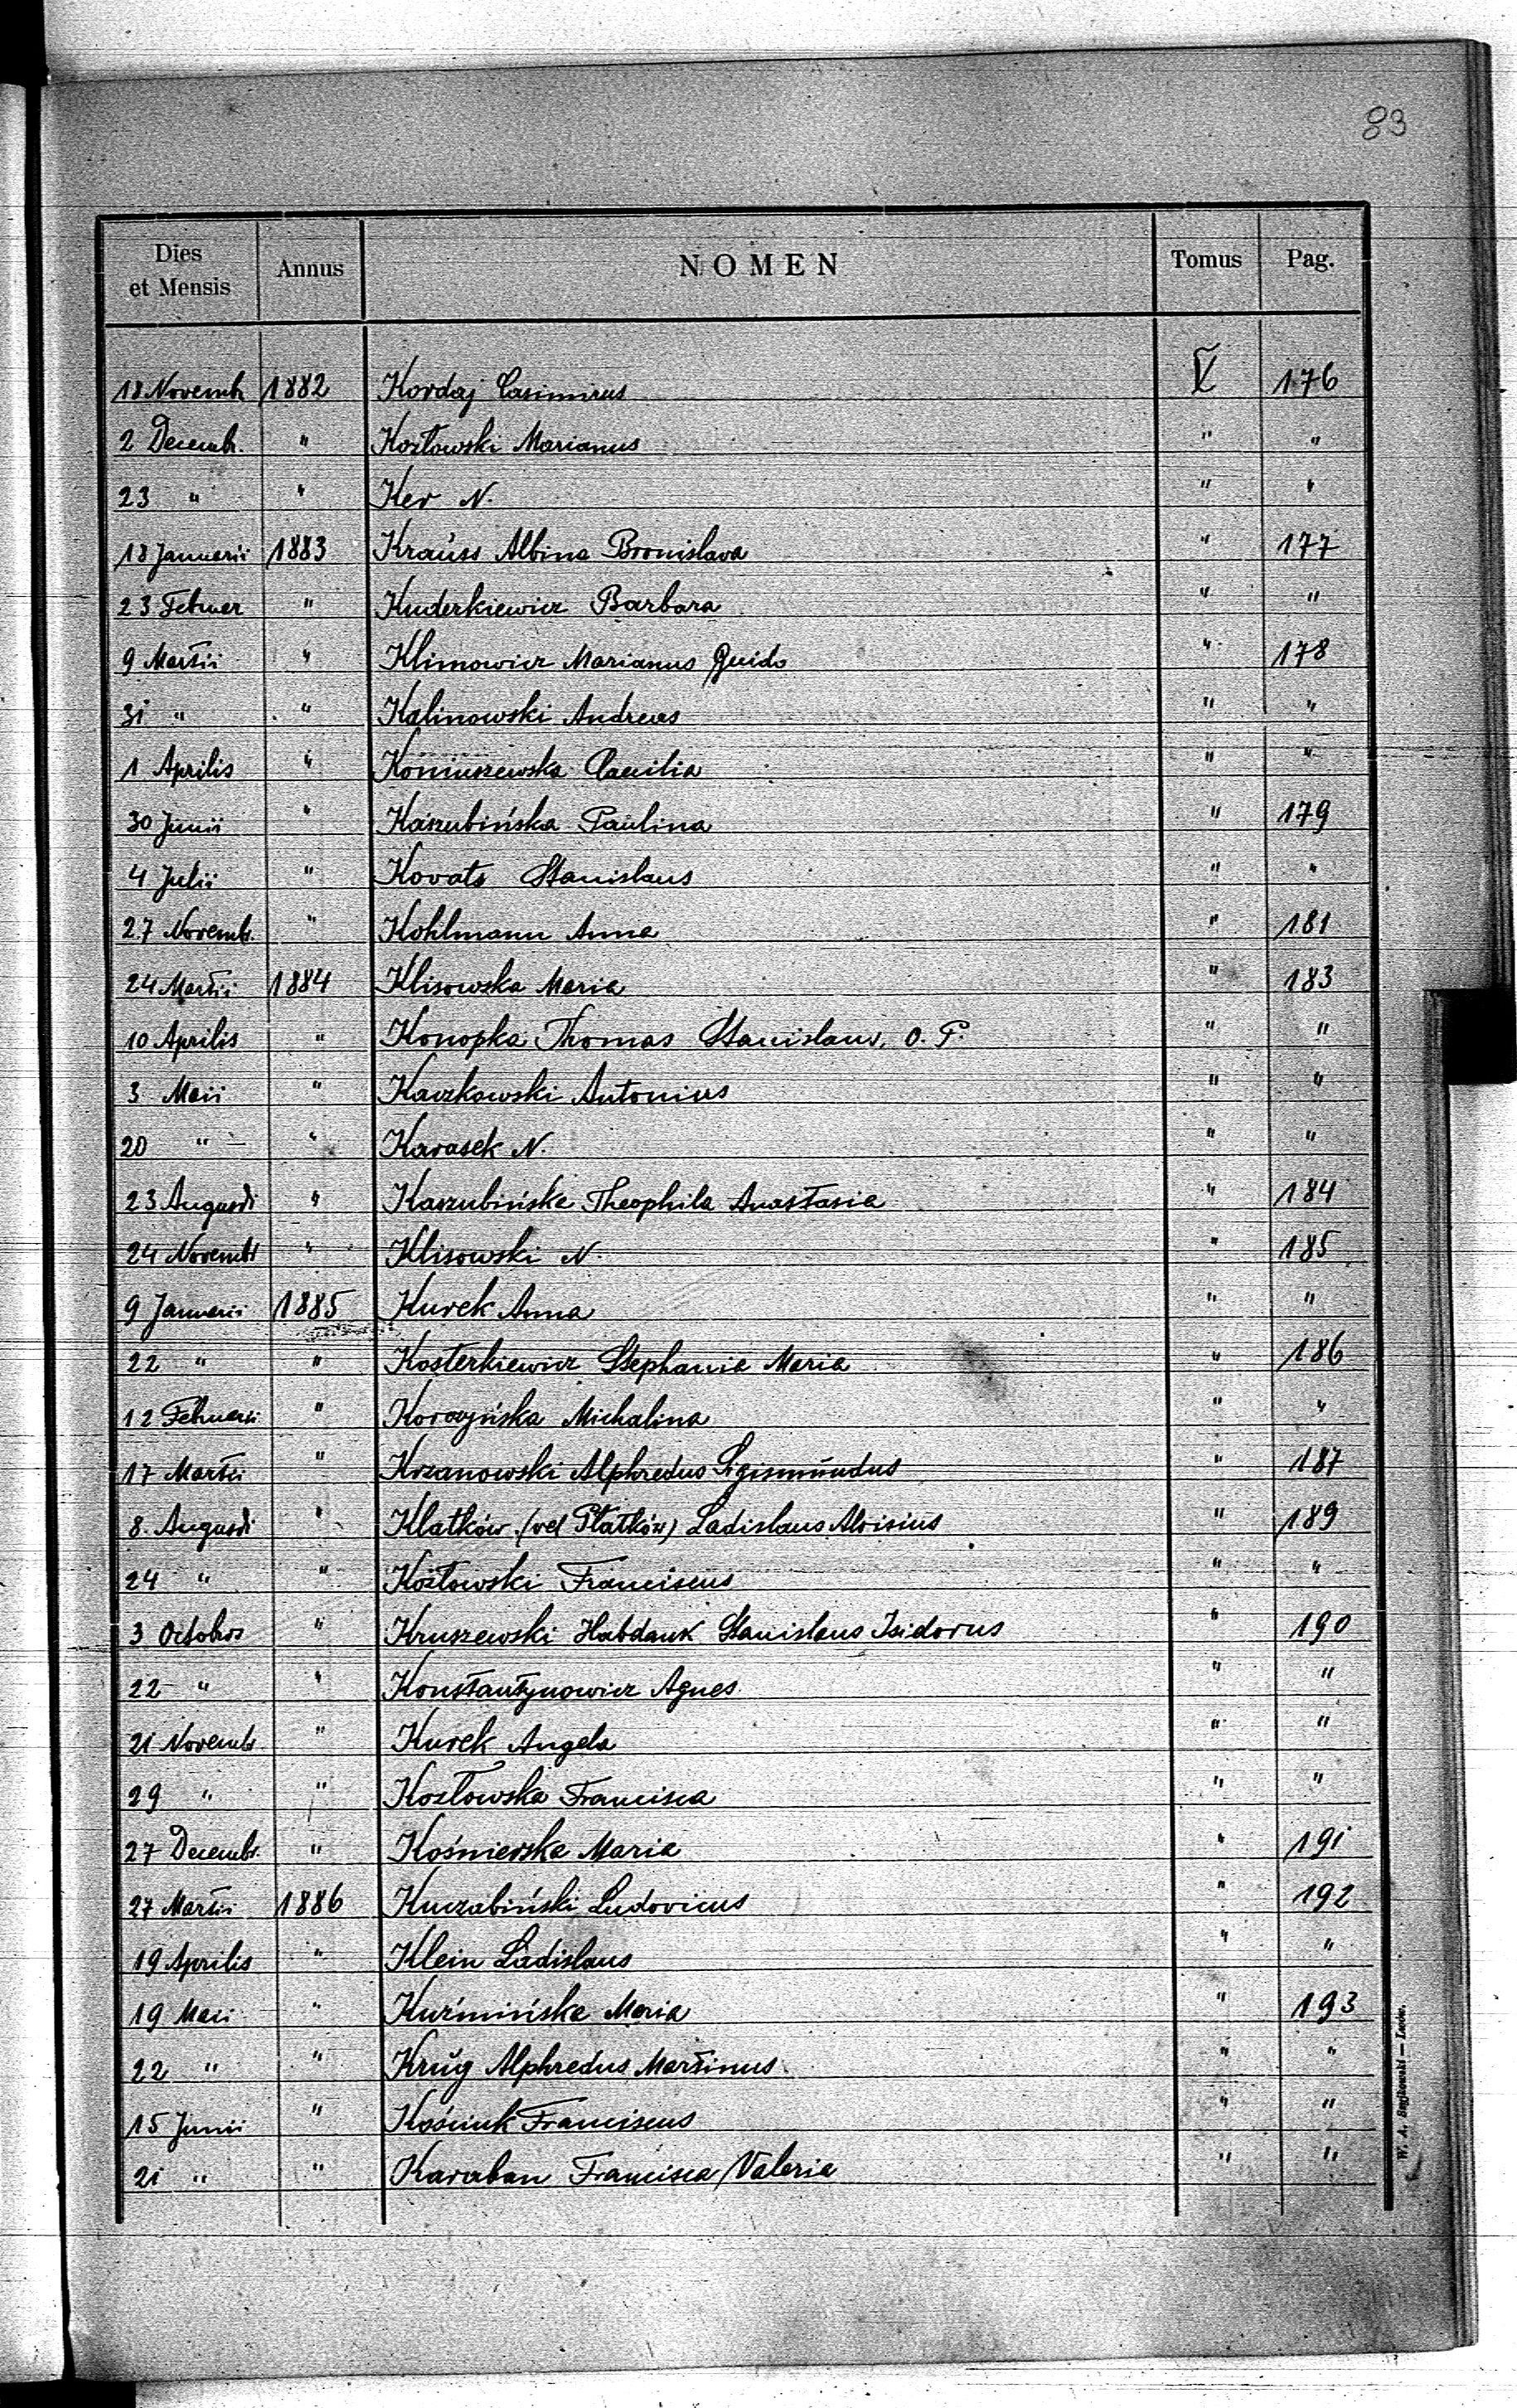 83
Dies et Mensis Annus NOMEN Tomus Pag.
18 Novemb. 1882 Kordaj Casimirus V 176
2 Decemb. " Kozłowski Marianus " "
23 " " Ker N. " "
18 Januarii 1883 Krauss Albina Bronislava " 177
23 Februar " Kuderkiewicz Barbara " "
9 Martii " Klimowicz Marianus Guido " 178
31 " " Kalinowski Andreas " "
1 Aprilis " Koniuszewska Caecilia " "
30 Junii " Kaszubińska Paulina " 179
4 Julii " Kovats Stanislaus " "
27 Novemb. " Kohlmann Anna " 181
24 Martii 1884 Klisowska Maria " 183
10 Aprilis " Konopka Thomas Stanislaus, O. P. " "
3 Maii " Kaczkowski Antonius " "
20 " " Karasek N. " "
23 Augusti " Kaszubińska Theophila Anastasia " 184
24 Novemb " Klisowski N. " 185
9 Januarii 1885 Kurek Anna " "
22 " " Kosterkiewicz Stephania Maria " 186
12 Februarii " Korczyńska Michalina " "
17 Martii " Krzanowski Alphredus Sigismundus " 187
8. Augusti " Klatków (vel Płatków) Ladislaus Aloisius " 189
24 " " Kozłowski Franciscus " "
3 Octobris " Kruszewski Habdank Stanislaus Isidorus " 190
22 " " Konstantynowicz Agnes " "
21 Novemb " Kurek Angela " "
29 " " Kozłowska Francisca " "
27 Decemb. " Kośnierska Maria " 191
27 Martii 1886 Kuczabiński Ludovicus " 192
19 Aprilis " Klein Ladislaus " "
19 Maii " Kuźmińska Maria " 193
22 " " Krug Alphredus Martinus " "
15 Junii " Kościuk Franciscus " "
21 " " Karaban Francisca Valeria " "